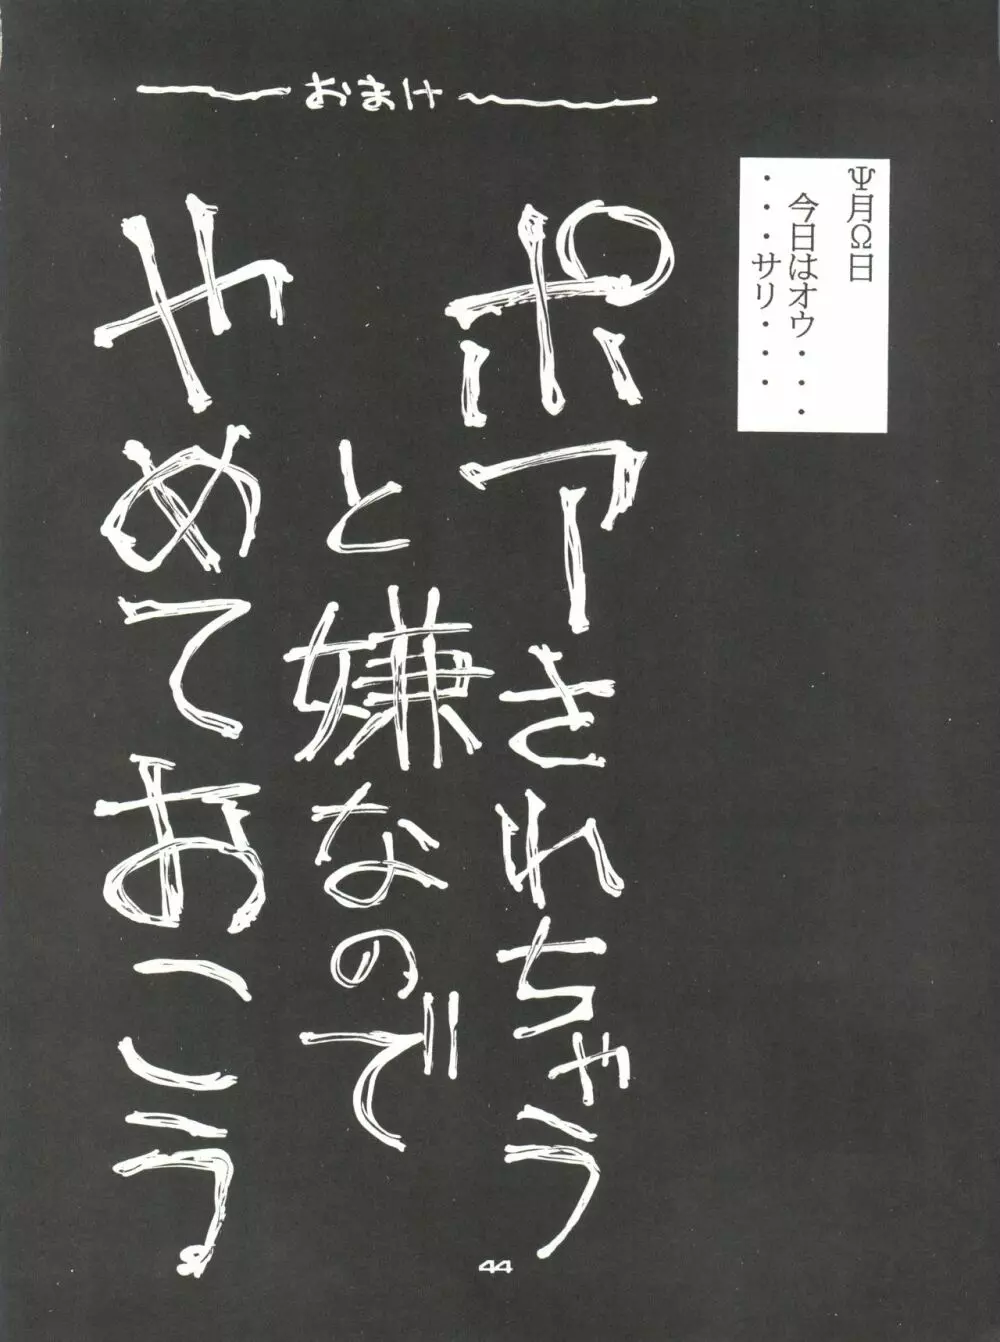 おまけ
Ψ月Ω日
今日はオウ・・・
・・・サリ・・・
ポアされちゃう
と嫌なので
やめておこう。
44